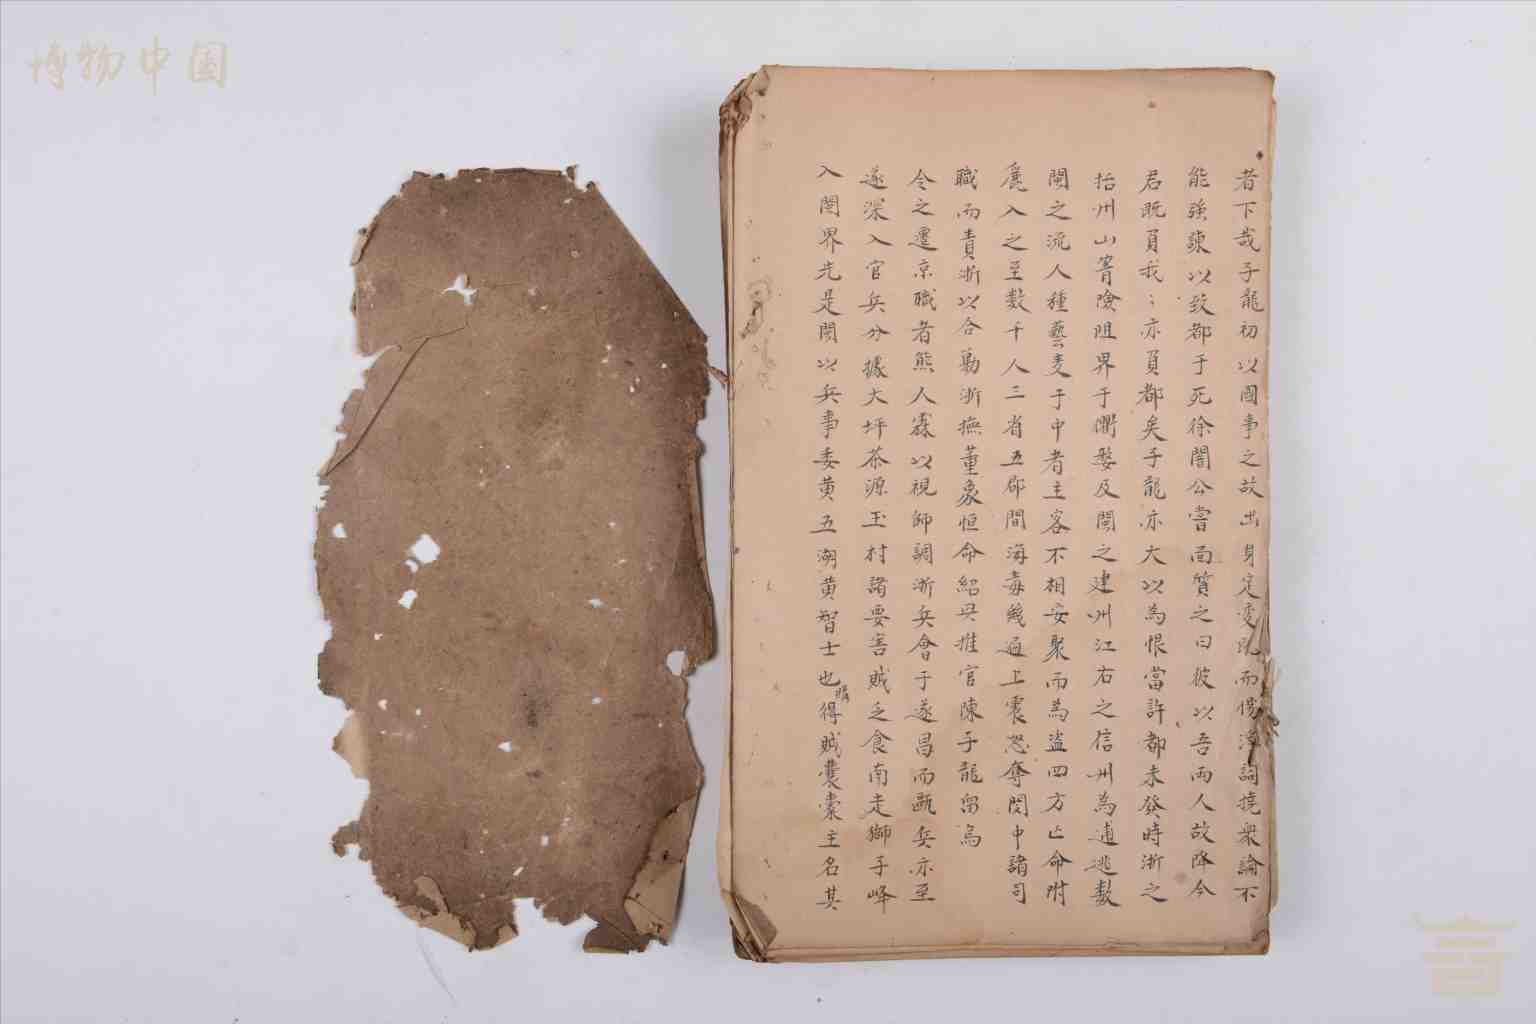 博物中国
者下哉子龍初以國事之故出身定变既而傷浮詞撓衆論不
能強諫以致都于死徐闇公嘗面質之曰彼以吾兩人故降今
君既負我〻亦負都矣子龍亦大以為恨當許都未發時浙之
括州山箐險阻界于衢婺及閩之建州江右之信州為逋逃数
閩之流人種藝麦于中者主客不相安聚而為盗四方亡命附
麗入之至数千人三省五郡間海毒幾遍上震怒奪閩中諸司
職而責浙以合勦浙撫董象恒命紹興推官陳子龍留為
令之遷京職者熊人霖以視師調浙兵會于遂昌而甌兵亦至
遂深入官兵分據大坪茶源玉村諸要害賊乏食南走獅子峰
入閩界先是閩以兵事委黄五湖黄智士也賄得贼囊橐主名其